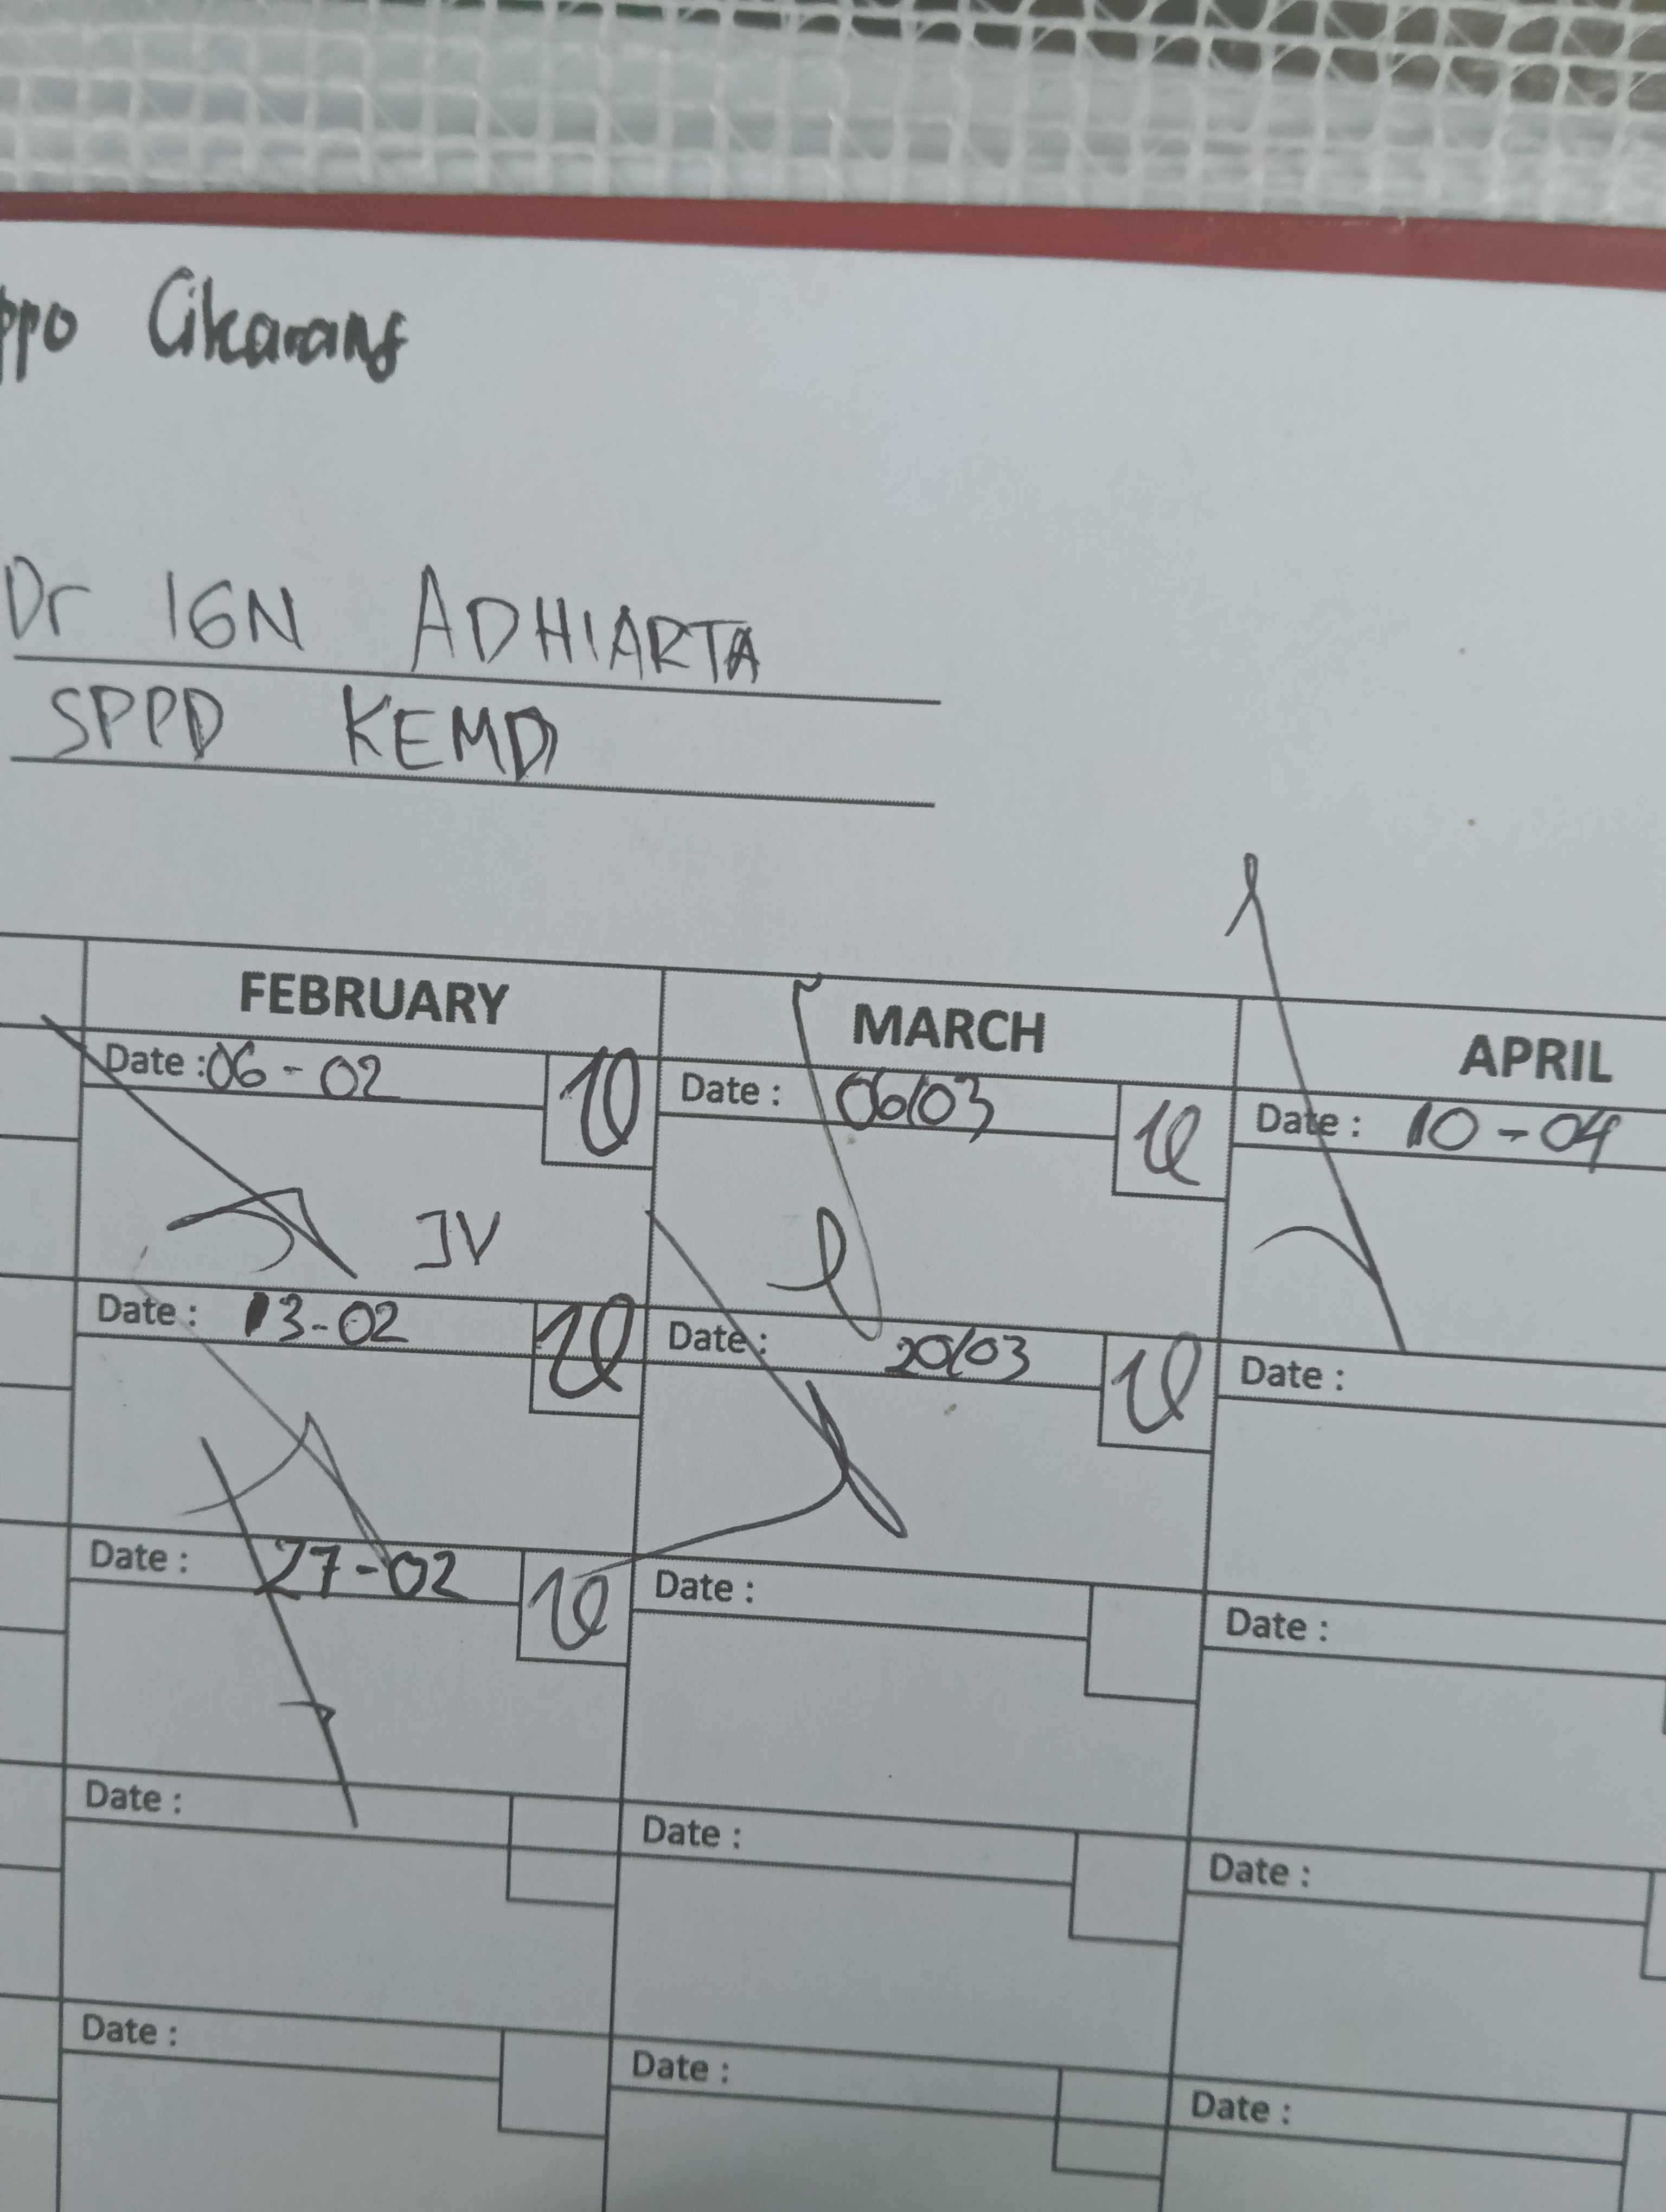 ppo Cikarang
Dr IGN ADHIARTA
SPPD KEMD
FEBRUARY MARCH APRIL
Date : 06-02
Date : 06/03
Date : 10-04
JV
Date : 13-02
Date : 20/03
Date :
Date : 27-02
Date :
Date :
Date :
Date :
Date :
Date :
Date :
Date :